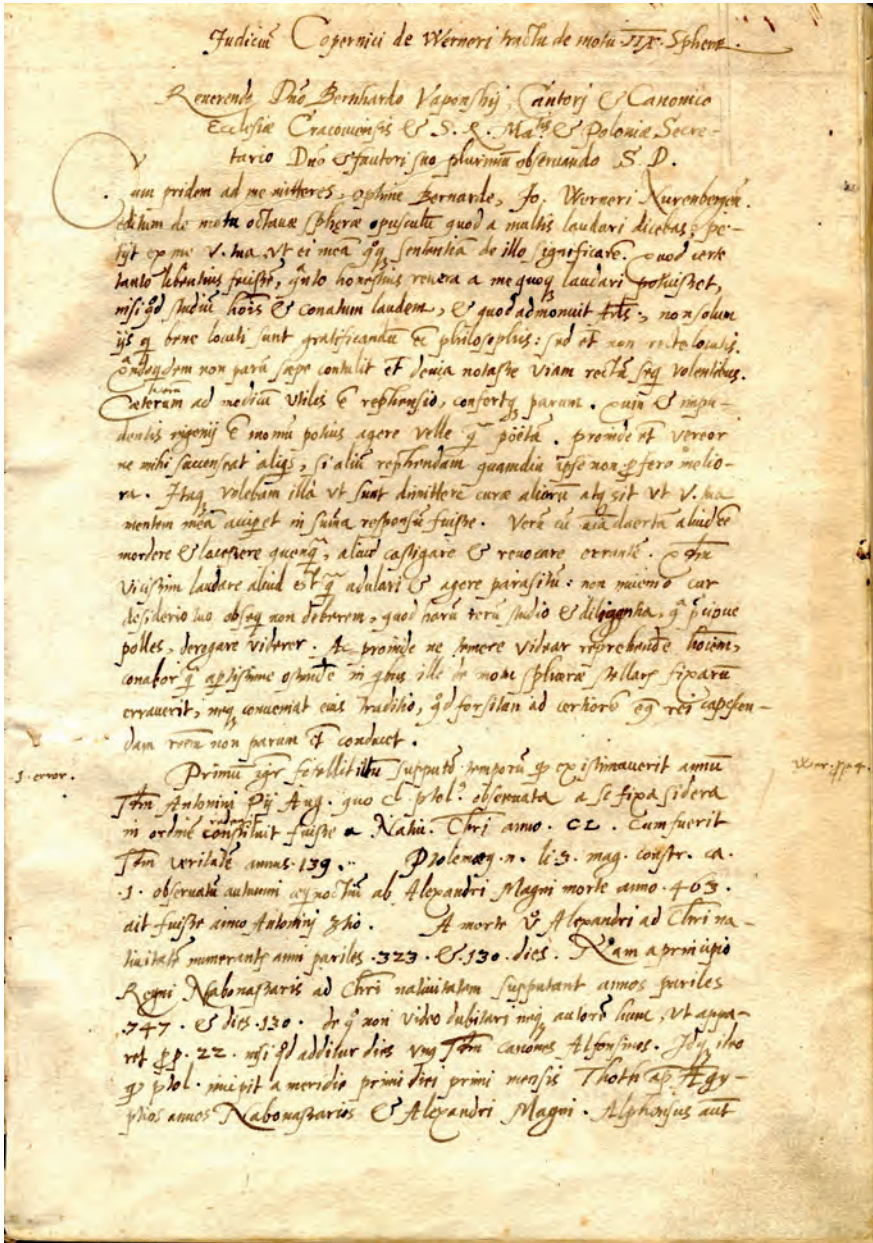 Judiciũ Copernici de Werneri tractu de motu IIX Spheræ.
Reverendo Dño Bernhardo Vaponskij, Cantorj & Canonico
Ecclesiæ Cracoviensis & S. R. Ma.tis & Poloniæ Secre-
tario Dño & fautori suo plurimũ observando S. D.
Cum pridem ad me mitteres, optime Bernarde, Jo. Werneri Nurenbergeñ.
editum de motu octavæ spheræ opusculũ quod a multis laudari dicebas; pe-
tijt ex me V. tua, vt ei meã qq sententiã de illo significarẽ. Quod certe
tanto libentius fecissẽ, qũto honestius revera a me quoq laudari potuisset,
nisi qd studiũ hoĩs & conatum laudem, & quod admonuit Arls., non solum
ijs q bene locuti sunt gratificandũ eẽ philosophis: sed et non recte locutis.
qñdoqdem non parũ sæpe contulit et devia notasse viam rectã seq volentibus.
Cæterum ad modicũ vtilis ẽ rephensio, confertq parum. Quin & impu-
dentis ingenij ẽ momũ potius agere velle q poëtã. proinde et vereor
ne mihi succenseat aliqs, si aliũ rephendam quamdiu ipse non pfero melio-
ra. Itaq volebam illa vt sunt dimittere curæ aliorũ atq sit vt V. tua
mentem meã accipet in suma responsũ fuisse. Verũ cũ aĩadverta aliud eẽ
mordere & lacessere quenq, aliud castigare & revocare errantẽ.
vicissim laudare aliud q adulari & agere parasitũ: non inuenio cur
desiderio tuo obseq non deberem, quod harũ rerũ studio & diligentia, q pcipue
polles, derogare viderer. Ac proinde ne temere videar reprehendẽ hoĩem,
conabor q aptissime ostendẽ in qbus ille de motu sphæræ stellarũ fixarũ
erraverit, neq conueniat eius traditio, qd forsitan ad certiorẽ eq rei capessen-
dam rõem non parum et conducet.
.1. error.
Primũ fefellit illũ supputõ temporũ qp existimaverit annũ
Antonini Pij Aug. quo Cl. ptol. observata a se fixa sidera
in ordinẽ constituit fuisse a Nativ. Chri anno. CL. Cum fuerit
veritatẽ annus. 139. Ptolemæq .n. li. 3. mag. constr. ca.
.1. observatũ autumni æqnoctiũ ab Alexandri Magni morte anno. 463.
ait fuisse anno Antoninj 3tio. A morte Alexandri ad Chri na-
tivitatẽ numerantr anni pariles .323. & .130. dies. Nam a principio
Regni Nabonassaris ad Chri nativitatem supputant annos pariles
.747. & dies .130. de q non video dubitari neq autorẽ hunc, vt appa-
ret pp. 22. nisi qd additur dies vnq canones Alfonsinos. Idq ideo
qp ptol. incipit a meridie primi diei primi mensis Thoth ap Ægy-
ptios annos Nabonassarios & Alexandri Magni. Alphonsus aũt